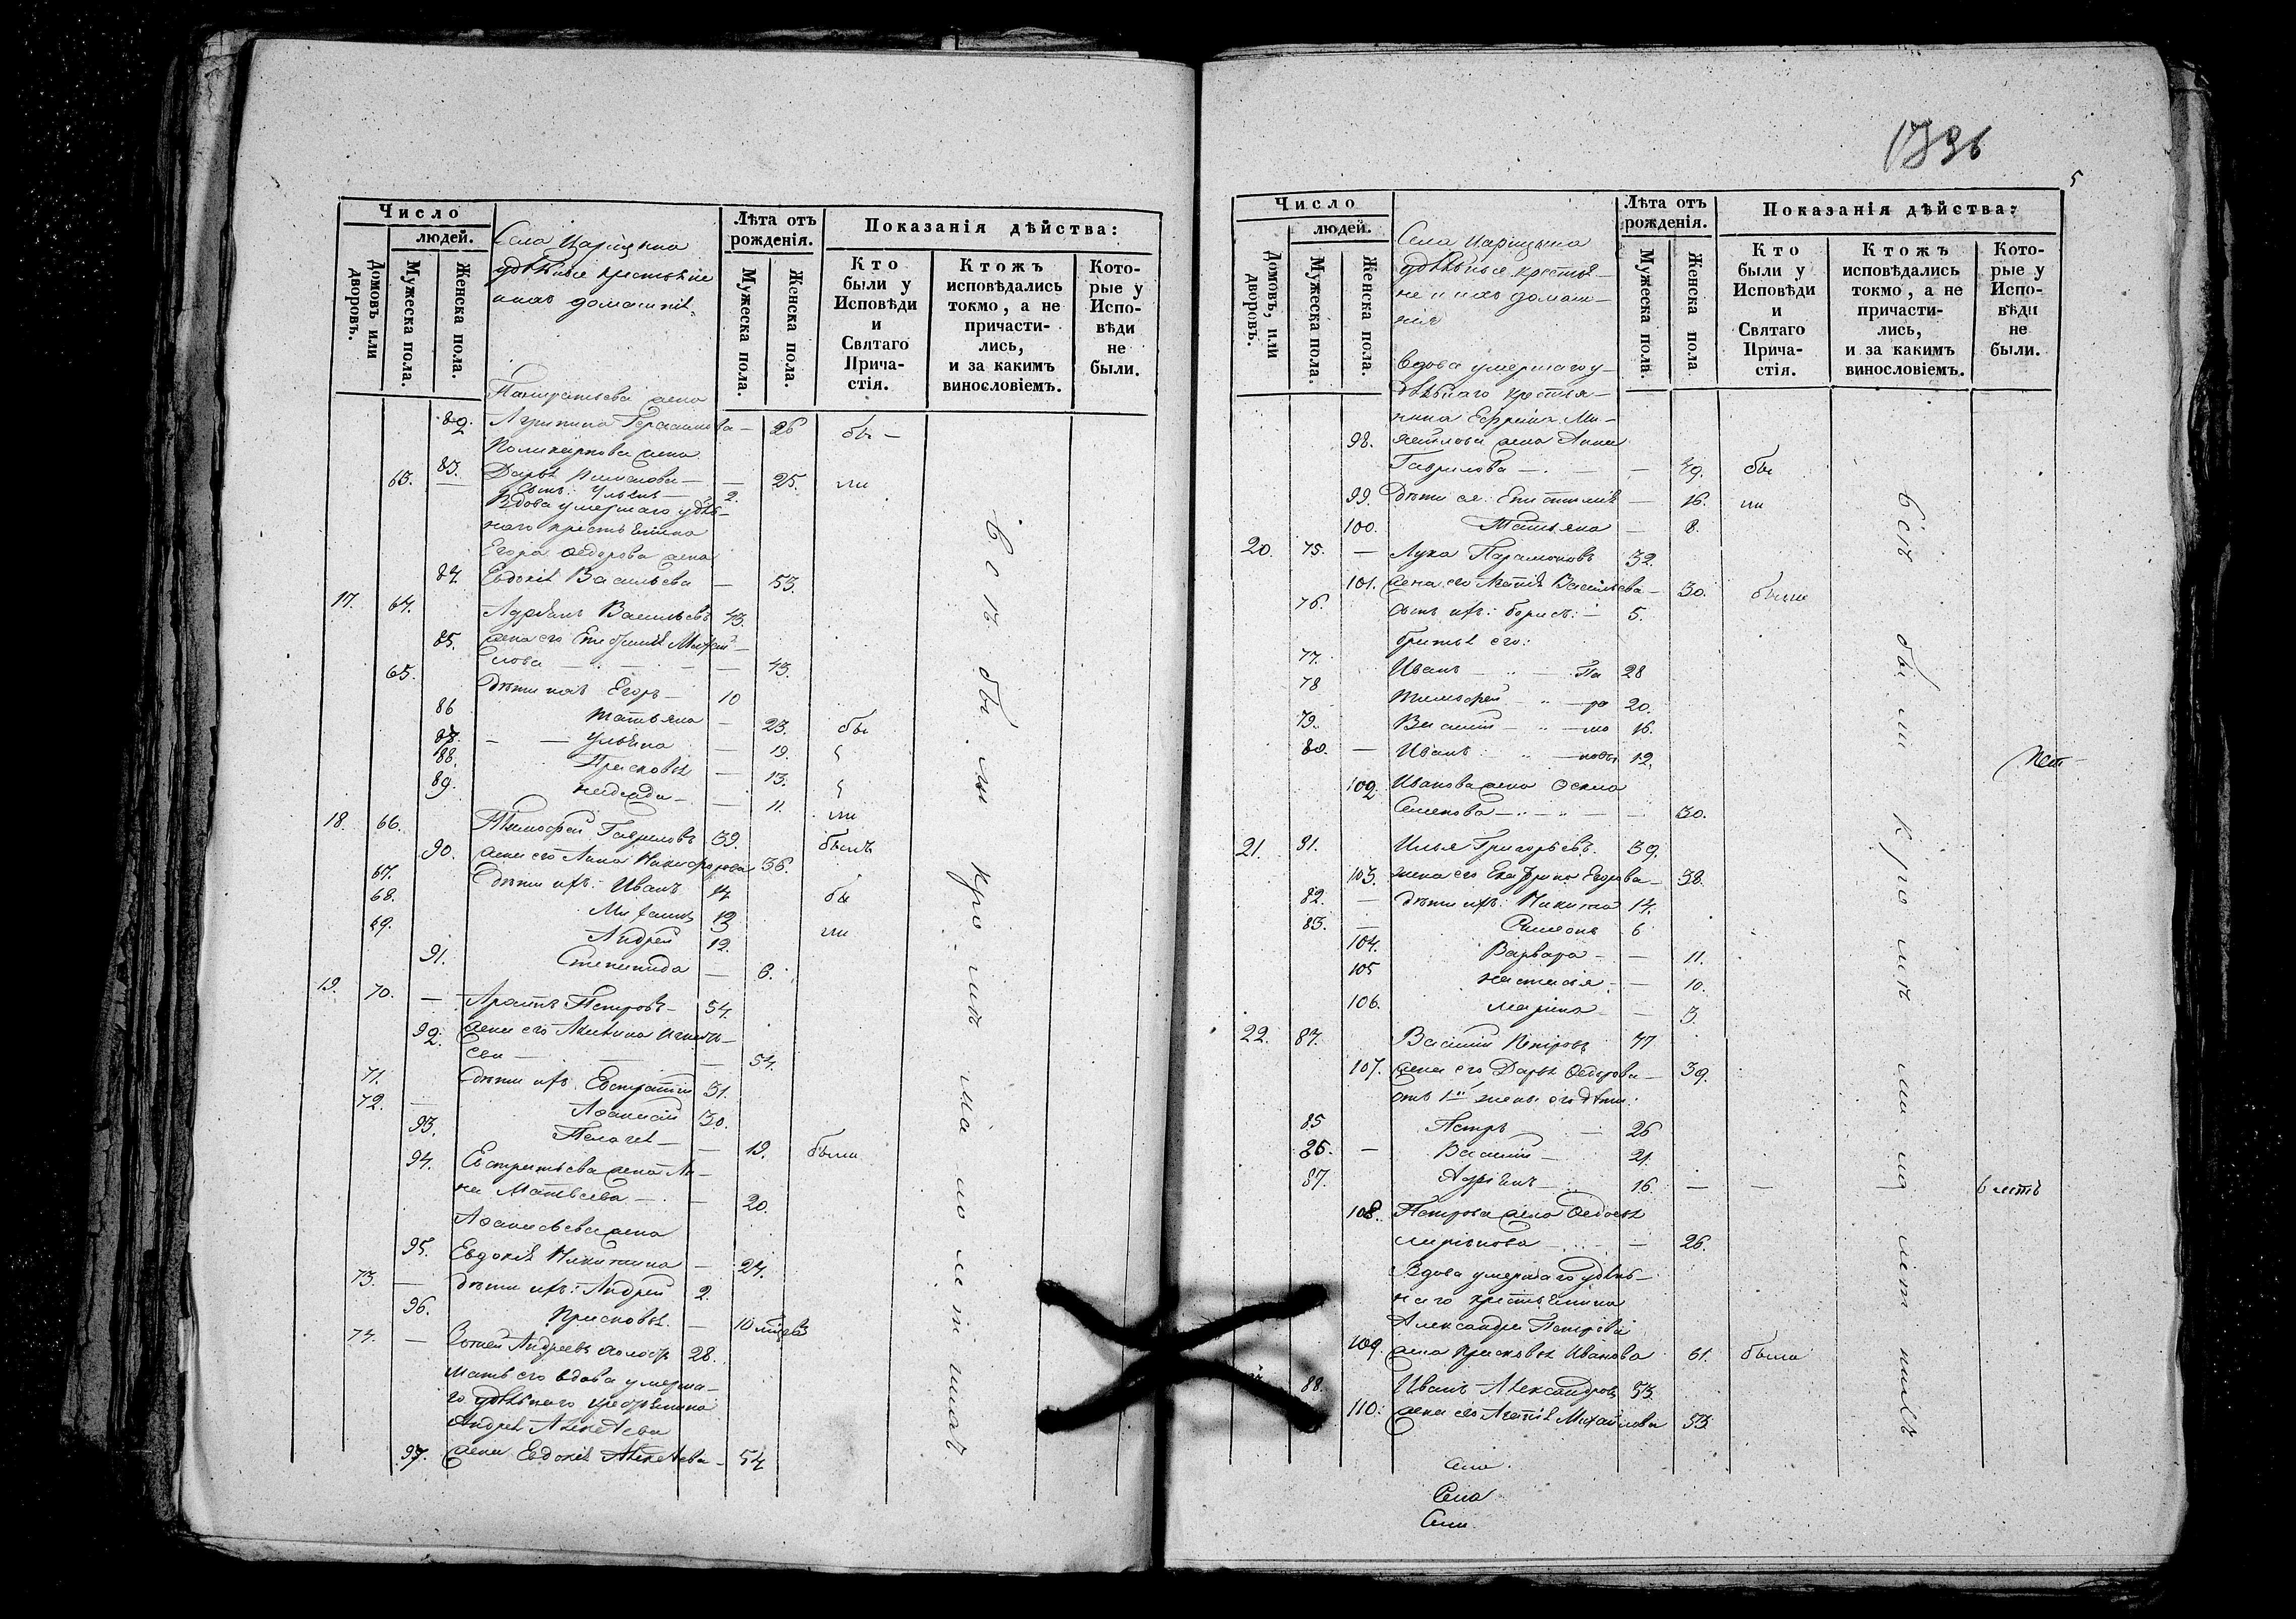 Число
людей.
Домовъ или дворовъ.
Мужеска пола.
Женска пола.
Села Царицына
удѣльные крестьяне
и ихъ домашнія
Лѣта отъ рожденія.
Мужеска пола.
Женска пола.
Показанія дѣйства:
Кто были у Исповѣди и Святаго Причастія.
Ктожъ исповѣдались токмо, а не причастились, и за какимъ винословіемъ.
Которые у Исповѣди не были.
Панкратьева жена
82. Агрипина Герасимова — 26 бы —
Поликарпова жена
83. Дарья — 25. ли
63. Сынъ: Ульянъ — 2.
Вдова умершаго удѣль-
наго крестьянина
Егора Федорова жена
84. Евдокія Васильева — 53.
17. 64. Адріянъ Васильевъ 43.
85. жена его Михай
лова — 43.
65. Дѣти ихъ Егоръ — 10
86 Татьяна — 23. бы
87. — — Ульяна — 19.
88. Присковья — 13.
89. — 11. ли
18. 66. Тимофей Гавриловъ 39. былъ
90. жена его Анна Никифорова 36.
67. Дѣти ихъ: Иванъ 14 бы
68. Михаилъ 13
69. Андрей 12. ли
91. Степанида — 6.
19. 70. — Петровъ — 54.
92. жена его Акилина Игнать-
ева — 54.
71. Дѣти ихъ. Евстратій 31.
72. — Афанасій 30.
93. Пелагея — 19. были
94. Евстратьева жена Ан-
на Матвѣева — 20.
Афанасьева жена
95. Евдокія Никитина — 24.
73. — Дѣти ихъ: Андрей 2.
96. Присковья. — 10 мѣсяцевъ
74. — Андреевъ холостъ 28.
Мать его вдова умерша-
го удѣльнаго крестьянина
Андрея Алексѣева
97. жена Евдокія Алексѣева — 54
всѣ были кромѣ малолѣтныхъ
1796
5
Число
людей.
Домовъ, или дворовъ.
Мужеска пола.
Женска пола.
Села Царицына
удѣльные крестья-
не и ихъ домаш-
нія
Лѣта отъ рожденія.
Мужеска пола.
Женска пола
Показанія дѣйства:
Кто были у Исповѣди и Святаго Причастія.
Ктожъ исповѣдались токмо, а не причастились, и за какимъ винословіемъ.
Которые у Исповѣди не были.
Вдова умершаго у-
дѣльнаго крестья-
нина Ефрема Ми-
98. хайлова жена Анна
Гаврилова — 49. бы
99. Дѣти ея: Епистимія — 16. ли
100. Татьяна — 8.
20. 75. — Лука Парамоновъ 32.
101. жена его Агафія Васильева — 30. были
76. сынъ ихъ: Борисъ: — 5.
братья его:
77. Иванъ — „ — Па 28
78 Тимофей — „ — ра 20.
79. Василій — „ — мо 16.
80. — Иванъ „ — новы 12.
102. Иванова жена Фекла
Семенова — „ — 30.
21. 81. Илья Григорьевъ. 39.
103. жена его Екатерина Егорова — 38.
82. — Дѣти ихъ: Никита 14.
83. — Симеонъ 6
104. Варвара — — 11.
105 Настасія. — 10.
106. Марина — 3.
22. 84. Василій Петровъ 47
107. жена его Дарья Федорова — 39.
отъ 1й жены его дѣти:
85 Петръ — 26
26. — Василій — 21.
87. Адріянъ — 16. — —
108. Петрова жена Федосья
— 26.
Вдова умершаго удѣль-
наго крестьянина
Александра Петрова
109. жена Присковья Иванова 61. была
88. Иванъ Александровъ 53.
110. жена его Агафія Михайлова 53.
всѣ были кромѣ малолѣтныхъ
Села
Села
Села